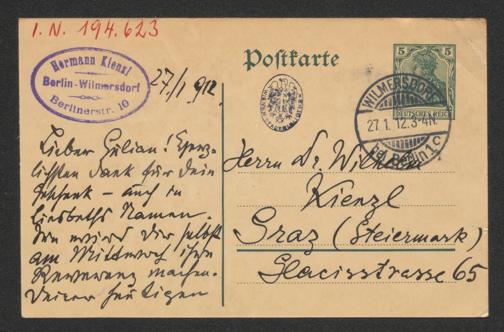 I. N. 194.623
Hermann Kienzl
Berlin-Wilmersdorf
Berlinerstr. 10
27/I 912.
Postkarte
5 5
DEUTSCHES REICH
WILMERSDORF
27.1.12.3-4N.
Bz. Berlin 1 c
Herrn Dr. Wilhelm
Kienzl
Graz (Steiermark)
Glacisstrasse 65
Lieber Julian! Herz-
lichsten Dank für Dein
Geschenk – auch in
Liesbeths Namen.
Sie wird Dir selbst
am Mittwoch ihre
machen.
Deiner heutigen